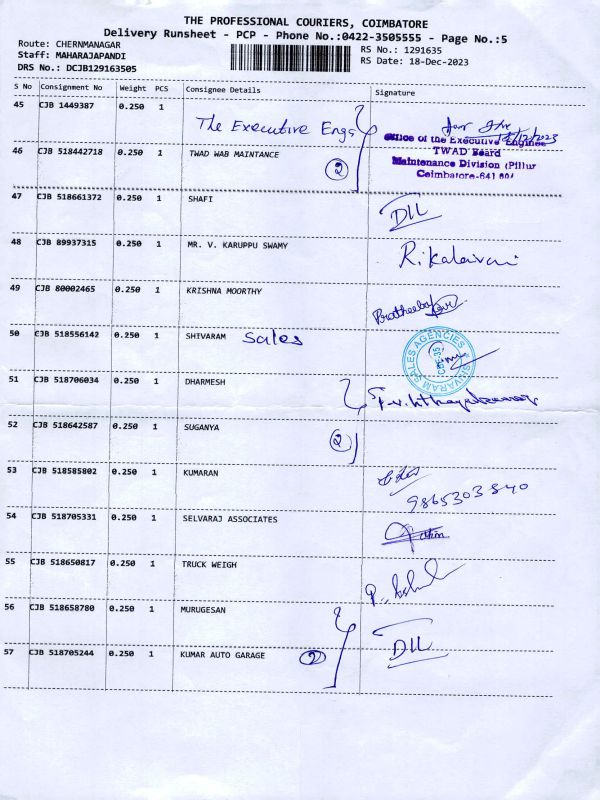 THE PROFESSIONAL COURIERS, COIMBATORE
Delivery Runsheet - PCP - Phone No.:0422-3505555 - Page No.:5
Route: CHERNMANAGAR
Staff: MAHARAJAPANDI
DRS No.: DCJB129163505
RS No.: 1291635
RS Date: 18-Dec-2023
S No Consignment No Weight PCS Consignee Details Signature
45 CJB 1449387 0.250 1 The Executive Engs
46 CJB 518442718 0.250 1 TWAD WAB MAINTANCE 2
Office of the Executive Engineer
TWAD Board
Maintenance Division (Pillur
Coimbatore-641
47 CJB 518661372 0.250 1 SHAFI
48 CJB 89937315 0.250 1 MR. V. KARUPPU SWAMY R. Kalaivani
49 CJB 80002465 0.250 1 KRISHNA MOORTHY
50 CJB 518556142 0.250 1 SHIVARAM Sales
SHIVARAM SALES AGENCIES
CBE-35
51 CJB 518706034 0.250 1 DHARMESH
52 CJB 518642587 0.250 1 SUGANYA 2
53 CJB 518585802 0.250 1 KUMARAN
9865303840
54 CJB 518705331 0.250 1 SELVARAJ ASSOCIATES
55 CJB 518650817 0.250 1 TRUCK WEIGH
56 CJB 518658780 0.250 1 MURUGESAN
57 CJB 518705244 0.250 1 KUMAR AUTO GARAGE 2